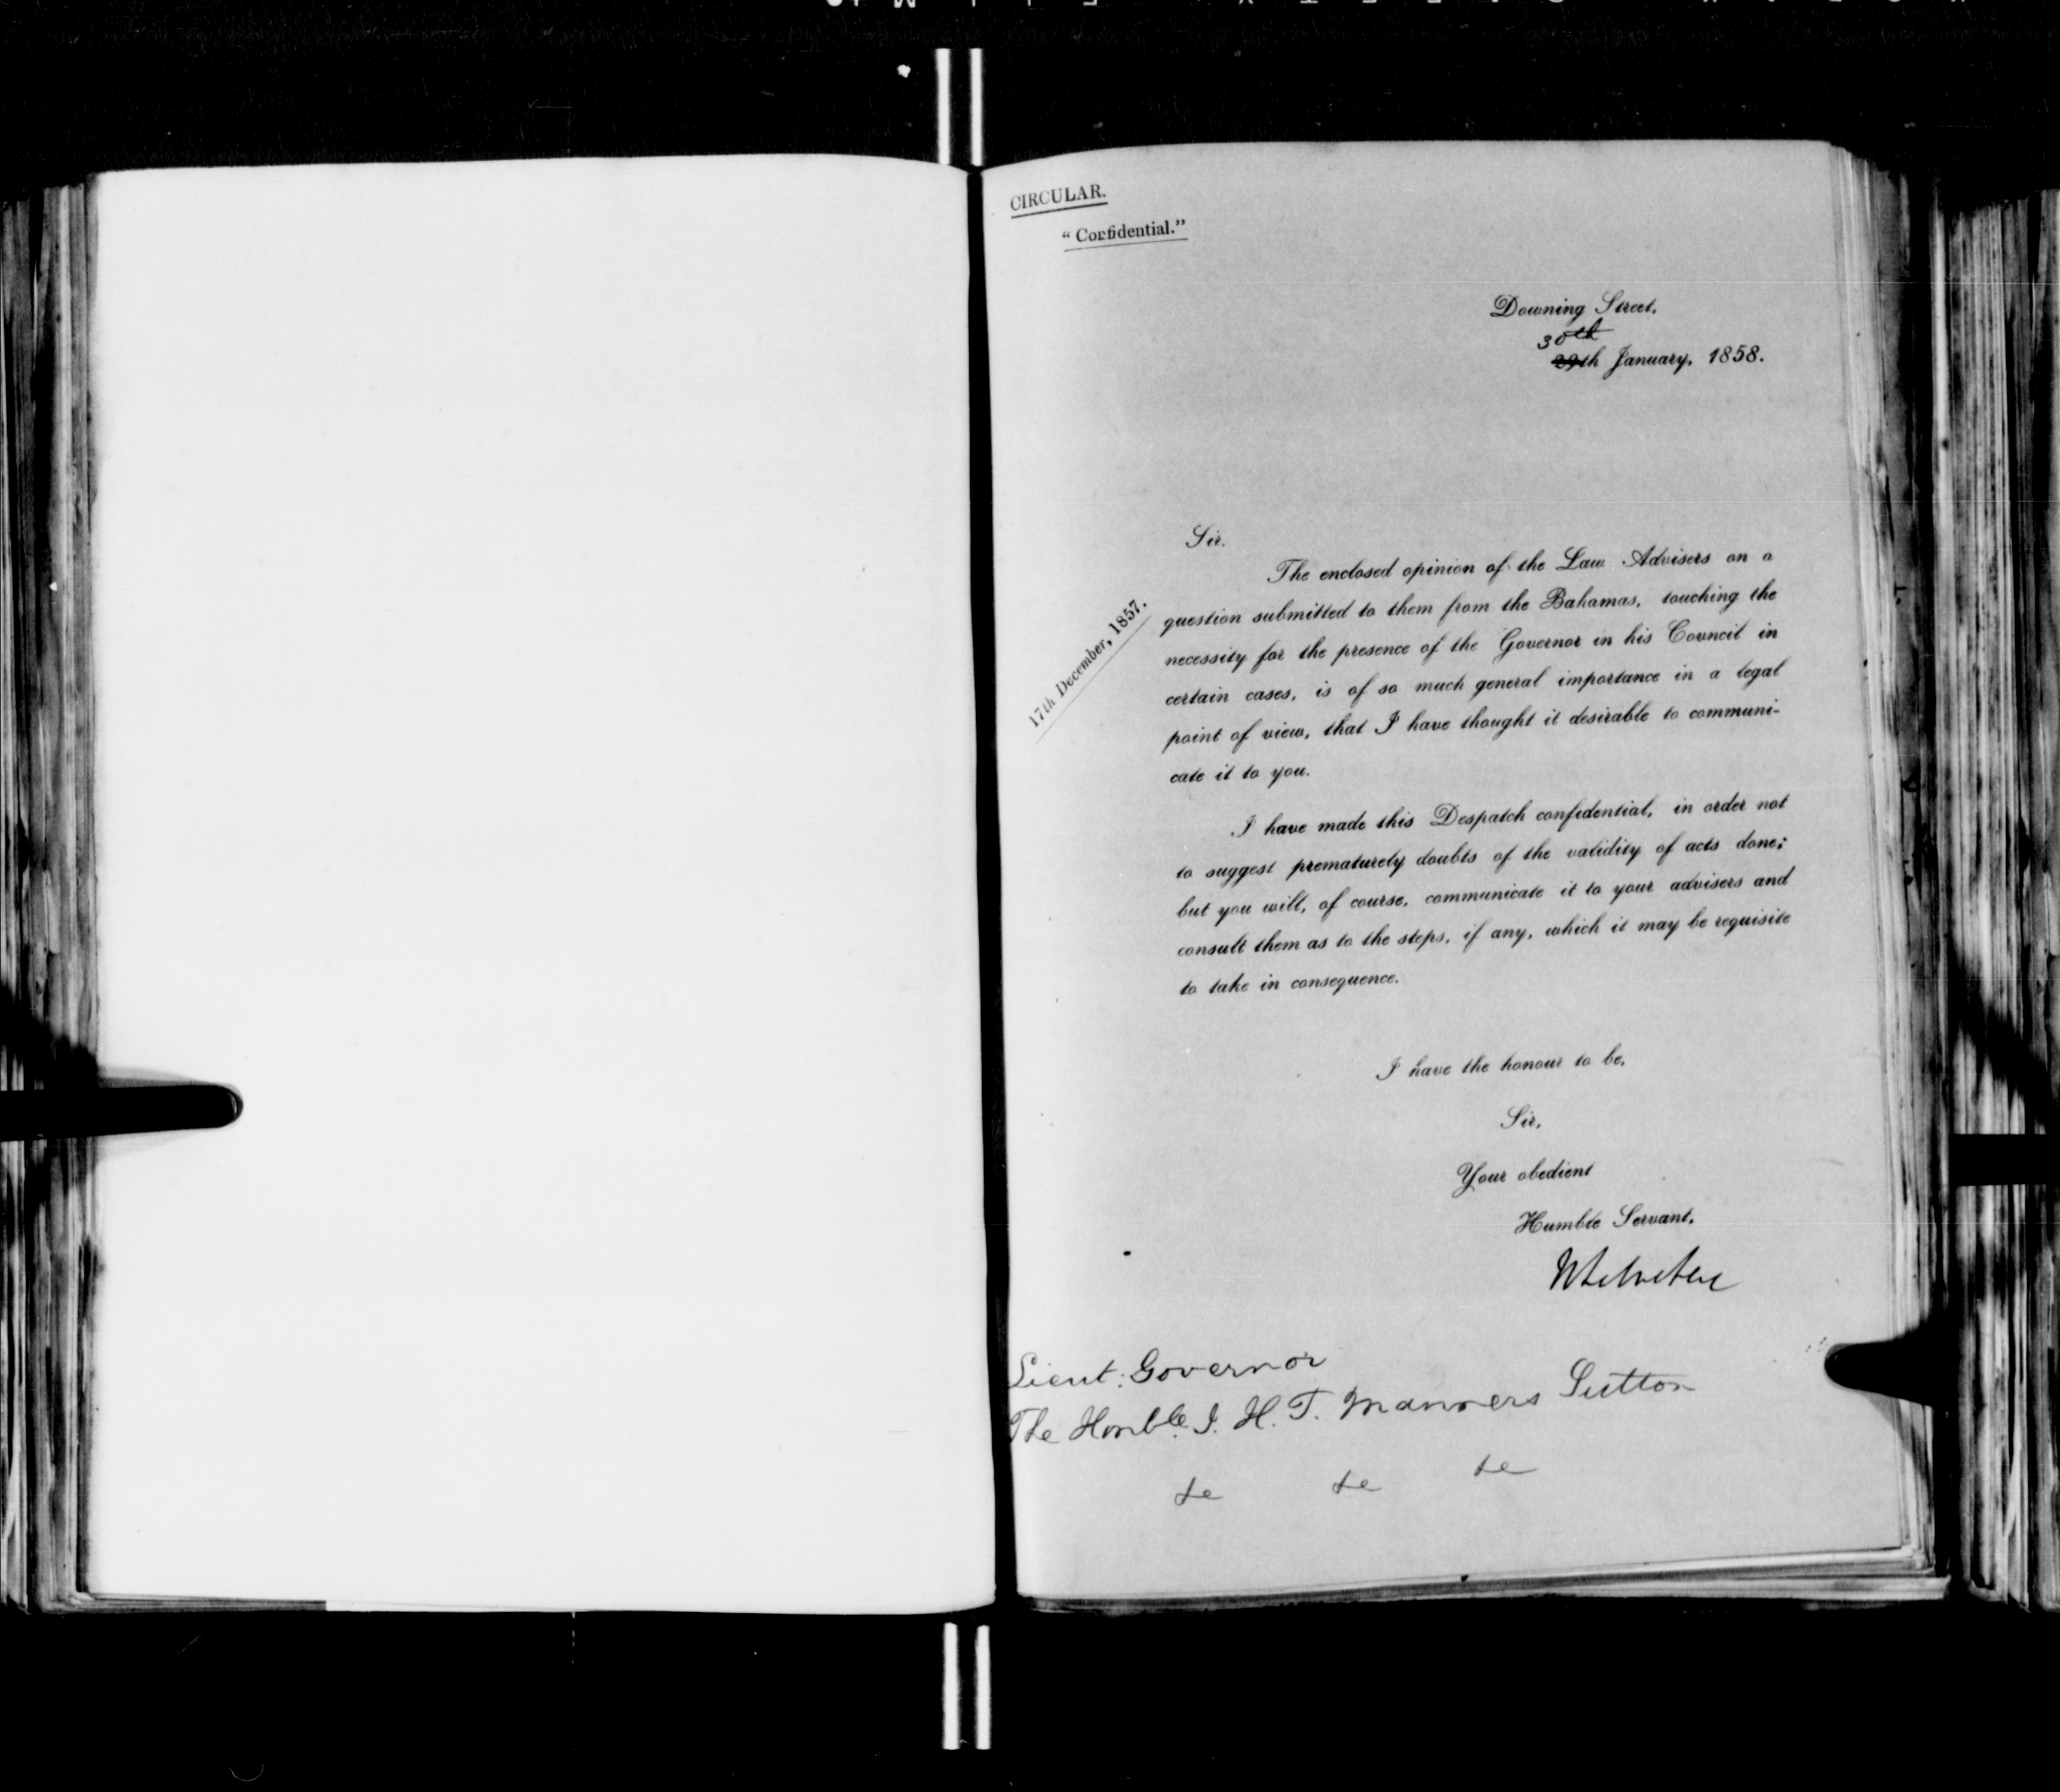 CIRCULAR.
"Confidential."
Downing Street,
30th
29th January, 1858.
Sir,
The enclosed opinion of the Law Advisers on a
question submitted to them from the Bahamas, touching the
necessity for the presence of the Governor in his Council in
certain cases, is of so much general importance in a legal
point of view, that I have thought it desirable to communi-
cate it to you.
17th December, 1857.
I have made this Despatch confidential, in order not
to suggest prematurely doubts of the validity of acts done;
but you will, of course, communicate it to your advisers and
consult them as to the steps, if any, which it may be requisite
to take in consequence.
I have the honour to be,
Sir,
Your obedient
Humble Servant,
Lieut: Governor
The Honble. J. H. T. Manners Sutton
&c &c &c